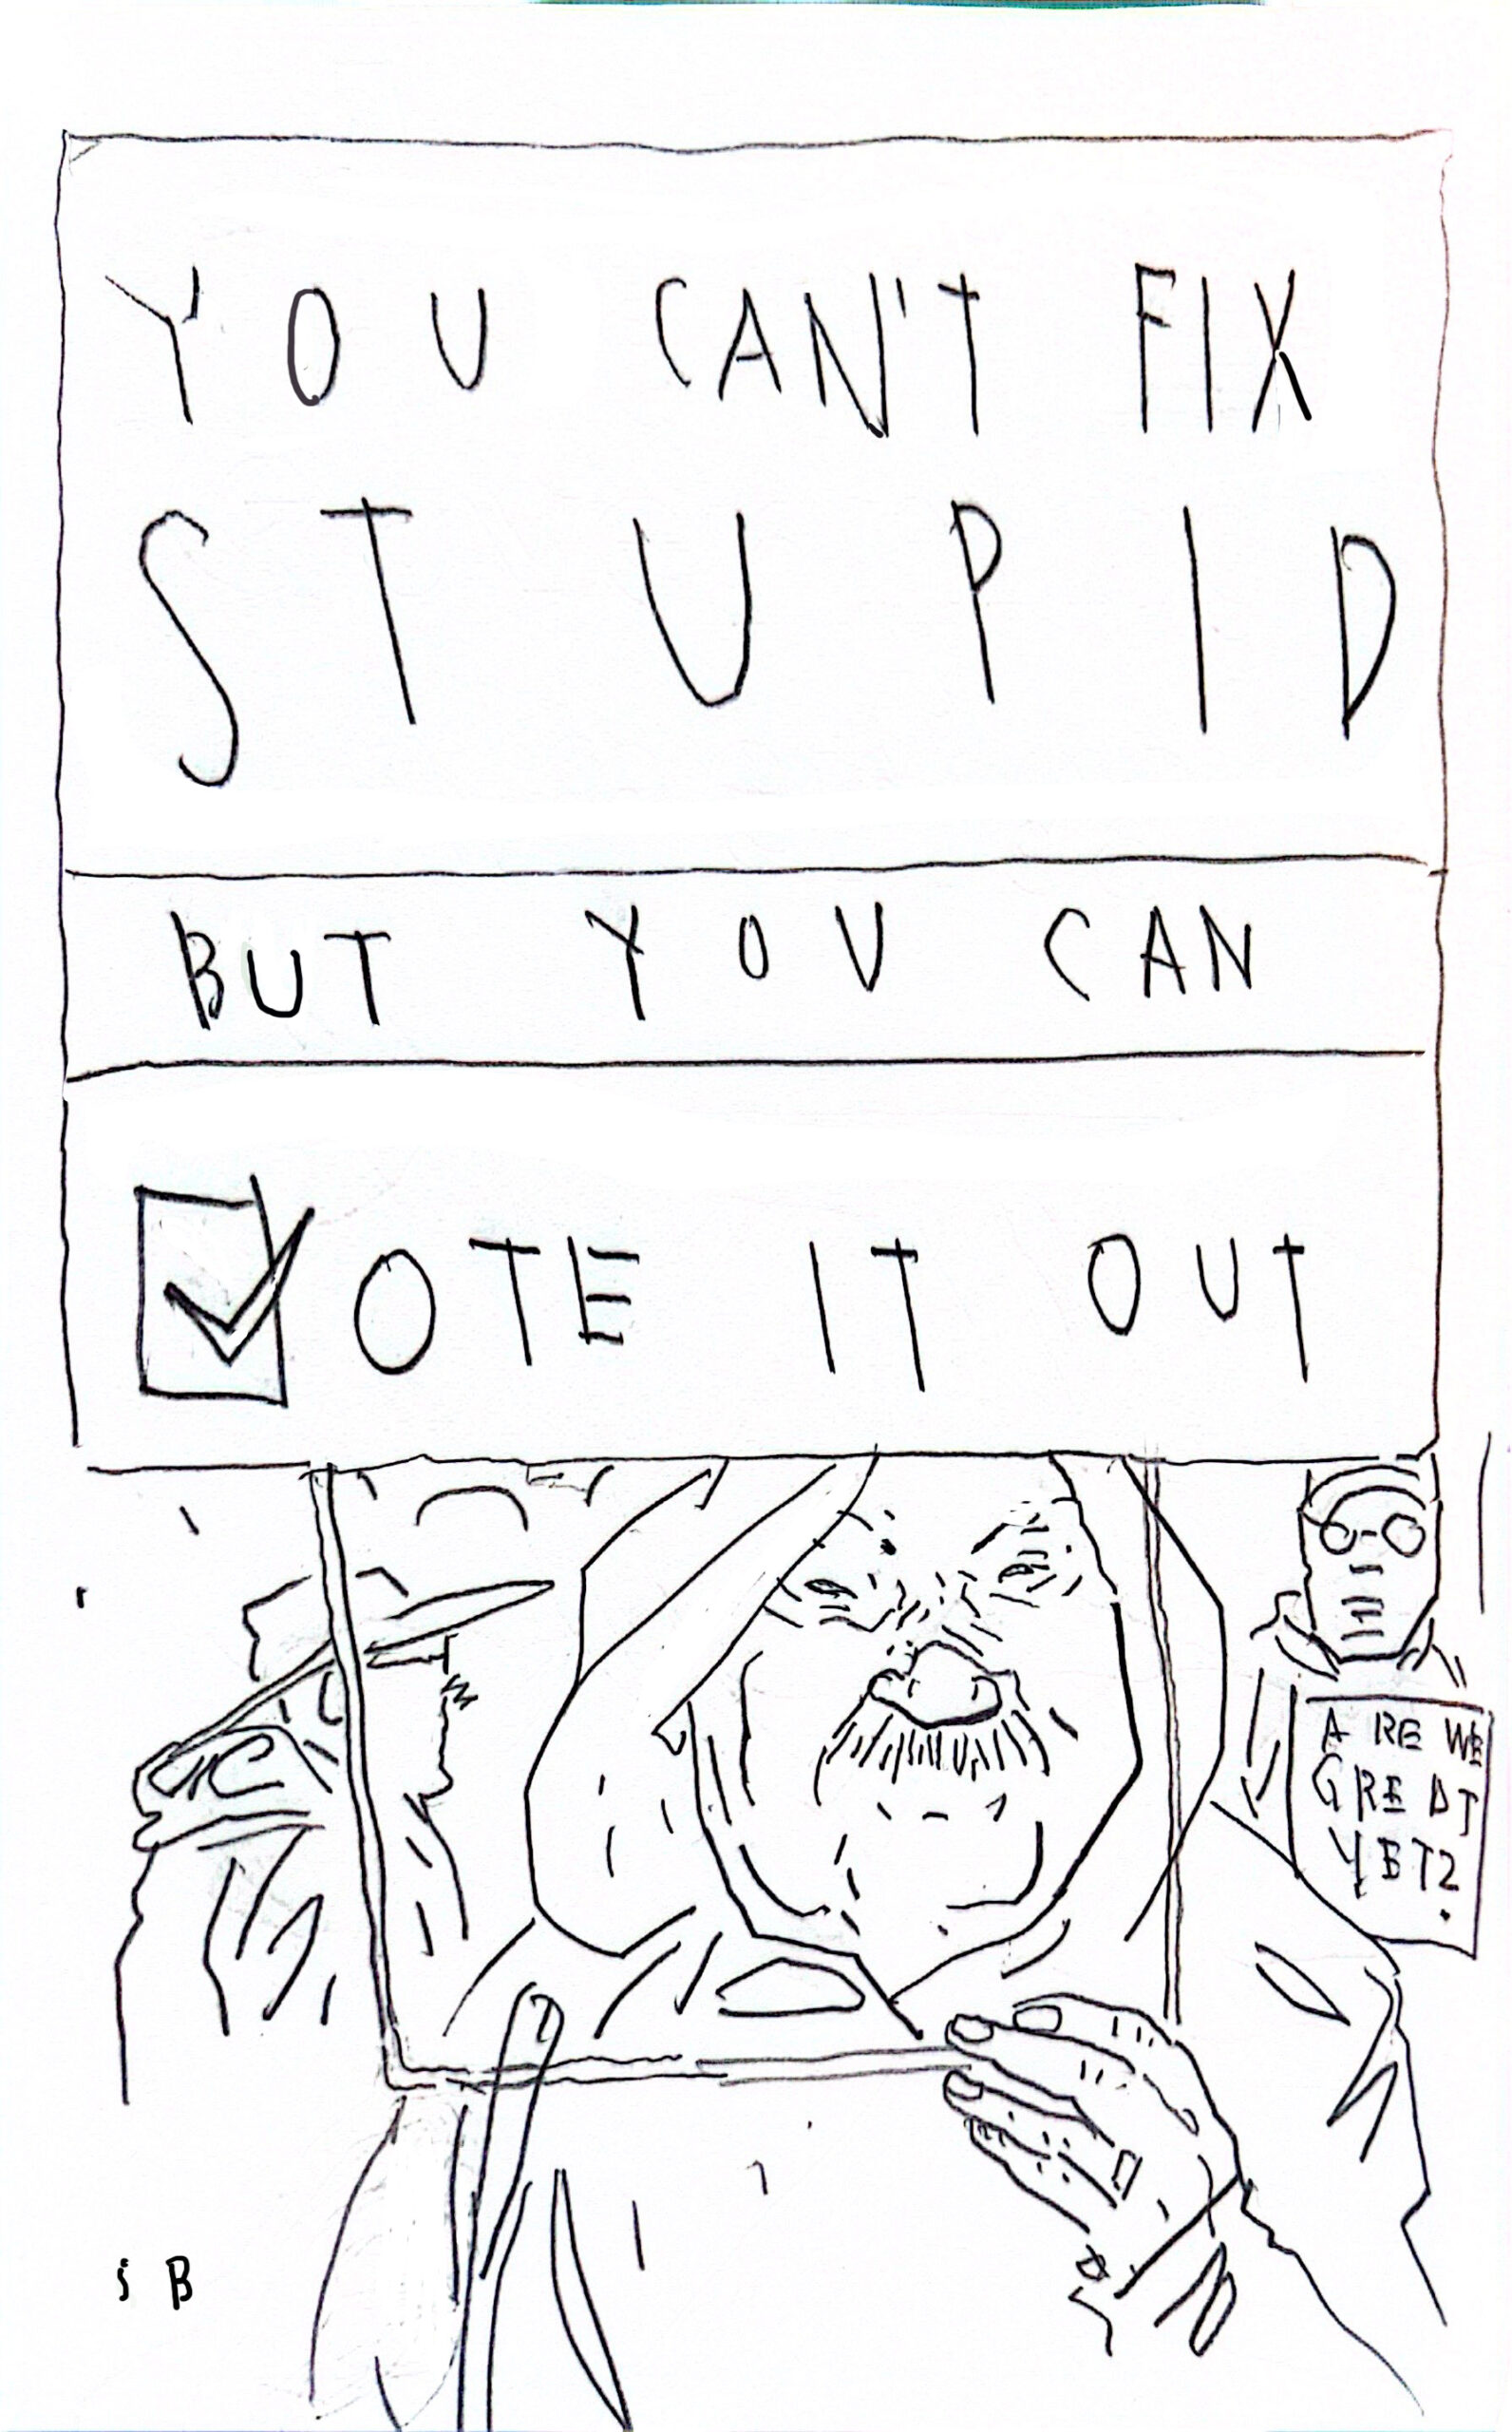 YOU CAN'T FIX
STUPID
BUT YOU CAN
VOTE IT OUT
ARE WE
GREAT
YET?
SB